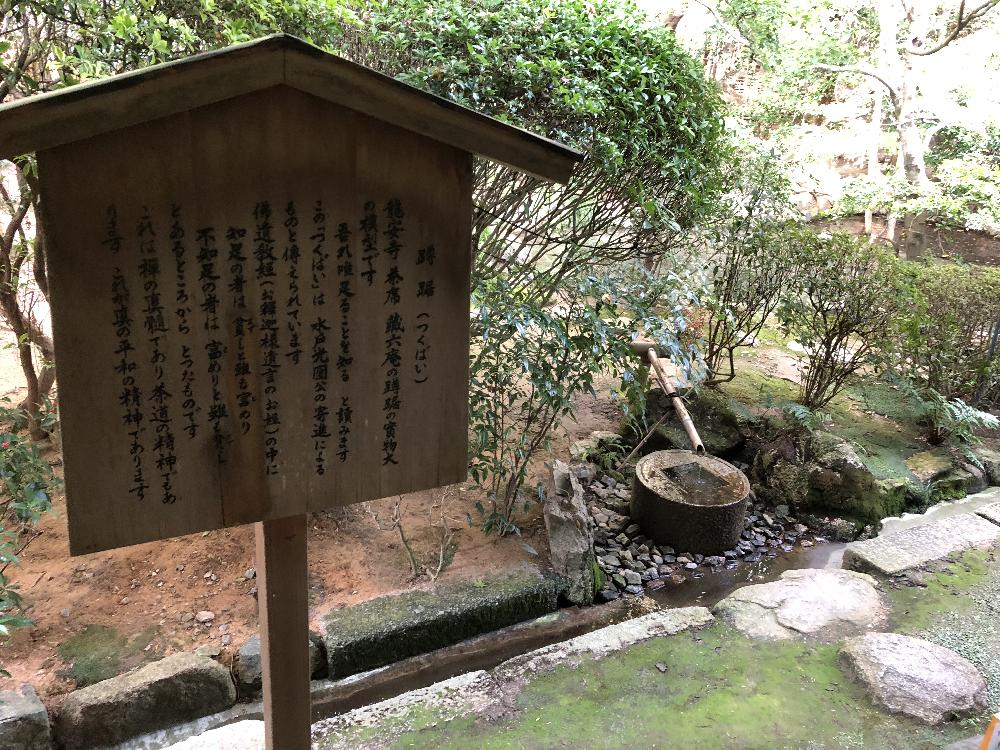 蹲踞（つくばい）
龍安寺 茶席 蔵六庵の蹲踞の實物大
の模型です
吾れ唯足ることを知る と讀みます
このつくばいは 水戸光圀公の寄進による
ものと傳えられています
佛遺教経（お釋迦様遺言のお経）の中に
知足の者は 貧しと雖も富めり
不知足の者は 富めりと雖も貧し
とあるところから とったものです
これは禅の真髄であり茶道の精神でもあ
ります これが真の平和の精神であります